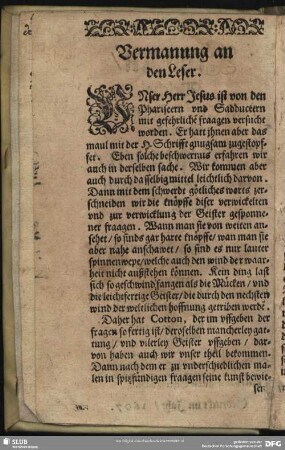 Vermanung an
den Leser.
VNser Herr Jesus ist von den
Phariseern vnd Sadduceern
mit gefehrliche fraagen versucht
worden. Er hatt jhnen aber das
maul mit der H. Schrifft gnugsam zugestopf-
fet. Eben solche beschwernus erfahren wir
auch in derselben sache. Wir kommen aber
auch durch dasselbig mittel leichtlich darvon.
Dann mit dem schwerdt götliches warts zer-
schneiden wir die knöpffe diser verwickelten
vnd zur verwicklung der Geister gesponne-
ner fraagen. Wann man sie von weiten an-
sehet / so sinds gar harte knöpffe / wan man sie
aber nahe anschawet / so sind es nur lauter
spinnenwepe / welche auch den wind der waar-
heit nicht außstehen können. Kein ding last
sich so geschwind fangen als die Mücken / vnd
die leichtfertige Geister / die durch den nechsten
wind der weltlichen hoffnung getriben werdē.
Daher hat Cotton, der im vffgeben der
fragen so fertig ist / deroselben mancherley gat-
tung / vnd vilerley Geister vffgeben / dar-
von haben auch wir vnser theil bekommen.
Dann nach dem er zu vnderschiedlichen ma-
len in spitzfündigen fraagen seine kunst bewie-
sen
SLUB
DFG